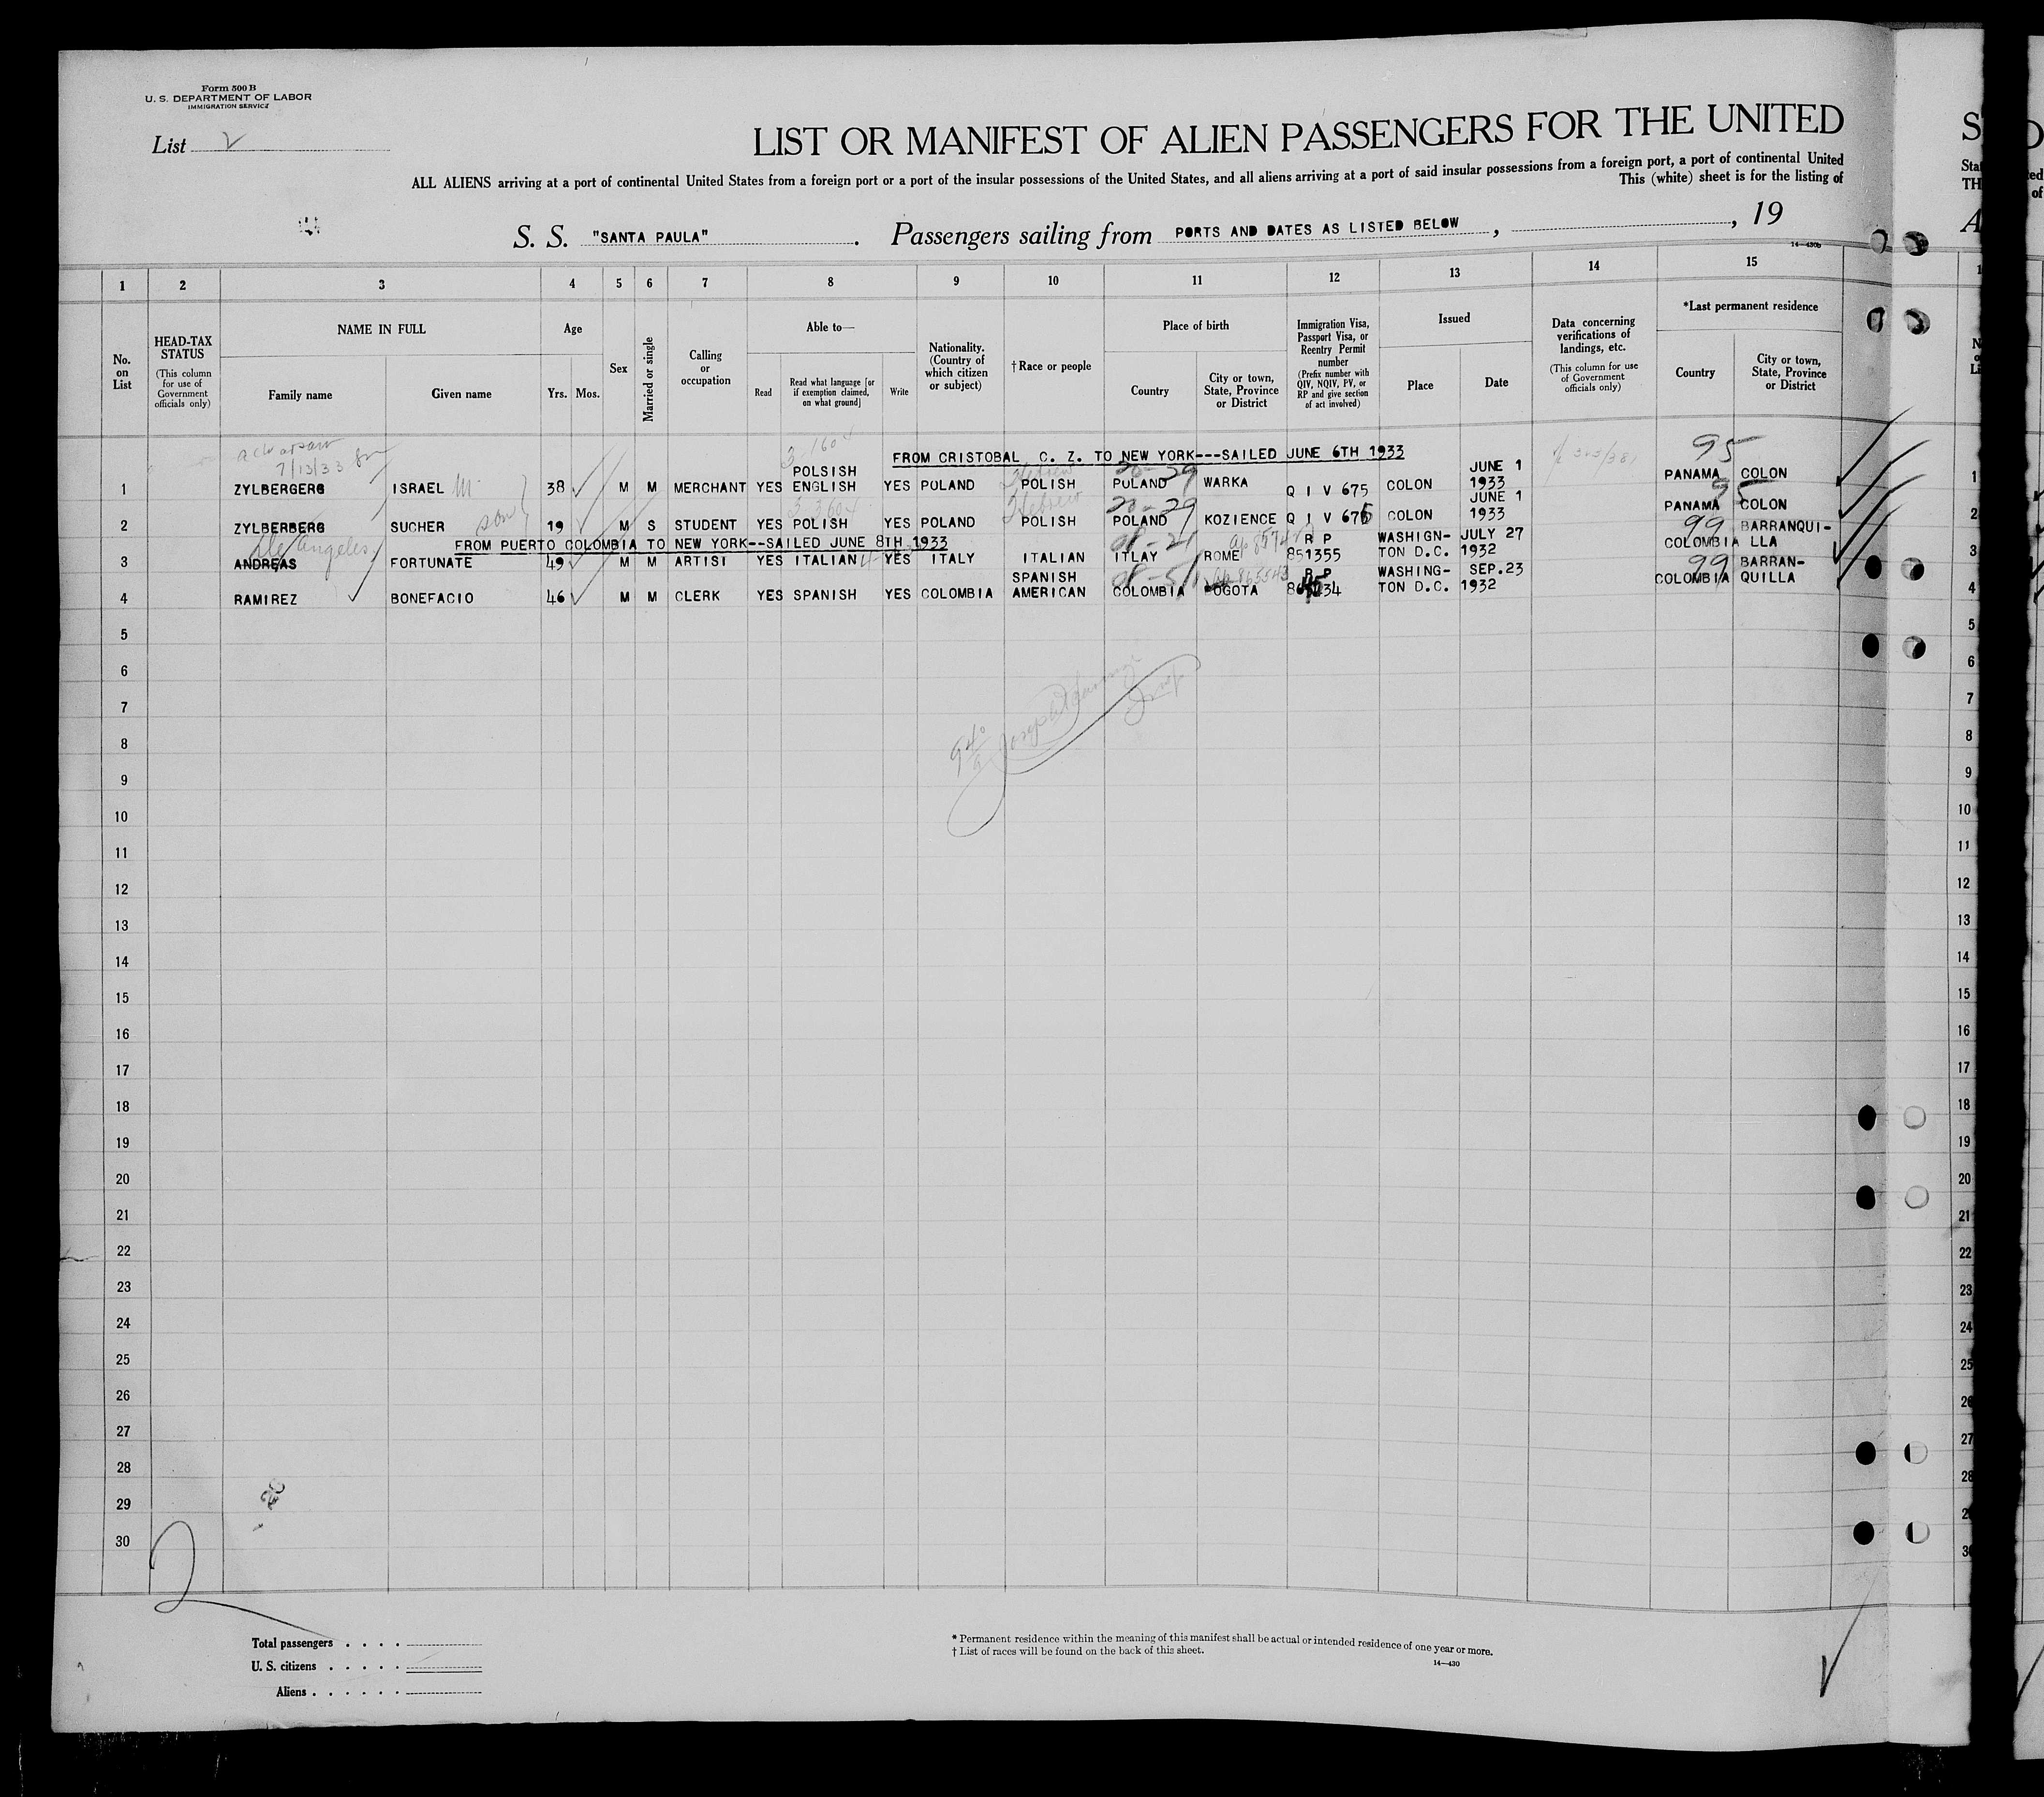 Form 500 B
U. S. DEPARTMENT OF LABOR
IMMIGRATION SERVICE
List 2
LIST OR MANIFEST OF ALIEN PASSENGERS FOR THE UNITED
ALL ALIENS arriving at a port of continental United States from a foreign port or a port of the insular possessions of the United States, and all aliens arriving at a port of said insular possessions from a foreign port, a port of continental United
This (white) sheet is for the listing of
S. S. "SANTA PAULA" . Passengers sailing from PORTS AND DATES AS LISTED BELOW , , 19
14—430b
1 2 3 4 5 6 7 8 9 10 11 12 13 14 15
No. on List
HEAD-TAX STATUS
(This column for use of Government officials only)
NAME IN FULL
Family name Given name
Age
Yrs. Mos.
Sex
Married or single
Calling or occupation
Able to—
Read Read what language [or if exemption claimed, on what ground] Write
Nationality. (Country of which citizen or subject)
† Race or people
Place of birth
Country City or town, State, Province or District
Immigration Visa, Passport Visa, or Reentry Permit number
(Prefix number with QIV, NQIV, PV, or RP and give section of act involved)
Issued
Place Date
Data concerning verifications of landings, etc.
(This column for use of Government officials only)
*Last permanent residence
Country City or town, State, Province or District
7/13/33
FROM CRISTOBAL, C. Z. TO NEW YORK---SAILED JUNE 6TH 1933
95
1 ZYLBERGERG ISRAEL M 38 M M MERCHANT YES POLSISH ENGLISH YES POLAND Hebrew POLISH 20-29 POLAND WARKA Q I V 675 COLON JUNE 1 1933 PANAMA COLON
2 ZYLBERBERG SUCHER son 19 M S STUDENT YES POLISH YES POLAND Hebrew POLISH 20-29 POLAND KOZIENCE Q I V 676 COLON JUNE 1 1933 95 PANAMA COLON
FROM PUERTO COLOMBIA TO NEW YORK--SAILED JUNE 8TH 1933
3 ANDREAS De Angeles FORTUNATE 49 M M ARTIST YES ITALIAN YES ITALY ITALIAN ITLAY ROME R P 851355 WASHIGN- TON D.C. JULY 27 1932 99 COLOMBIA BARRANQUI- LLA
4 RAMIREZ BONEFACIO 46 M M CLERK YES SPANISH YES COLOMBIA SPANISH AMERICAN COLOMBIA BOGOTA R P WASHING- TON D.C. SEP.23 1932 99 COLOMBIA BARRAN- QUILLA
5
6
7
8
9
10
11
12
13
14
15
16
17
18
19
20
21
22
23
24
25
26
27
28
29
30
2
Total passengers
U. S. citizens
Aliens
* Permanent residence within the meaning of this manifest shall be actual or intended residence of one year or more.
† List of races will be found on the back of this sheet.
14—430